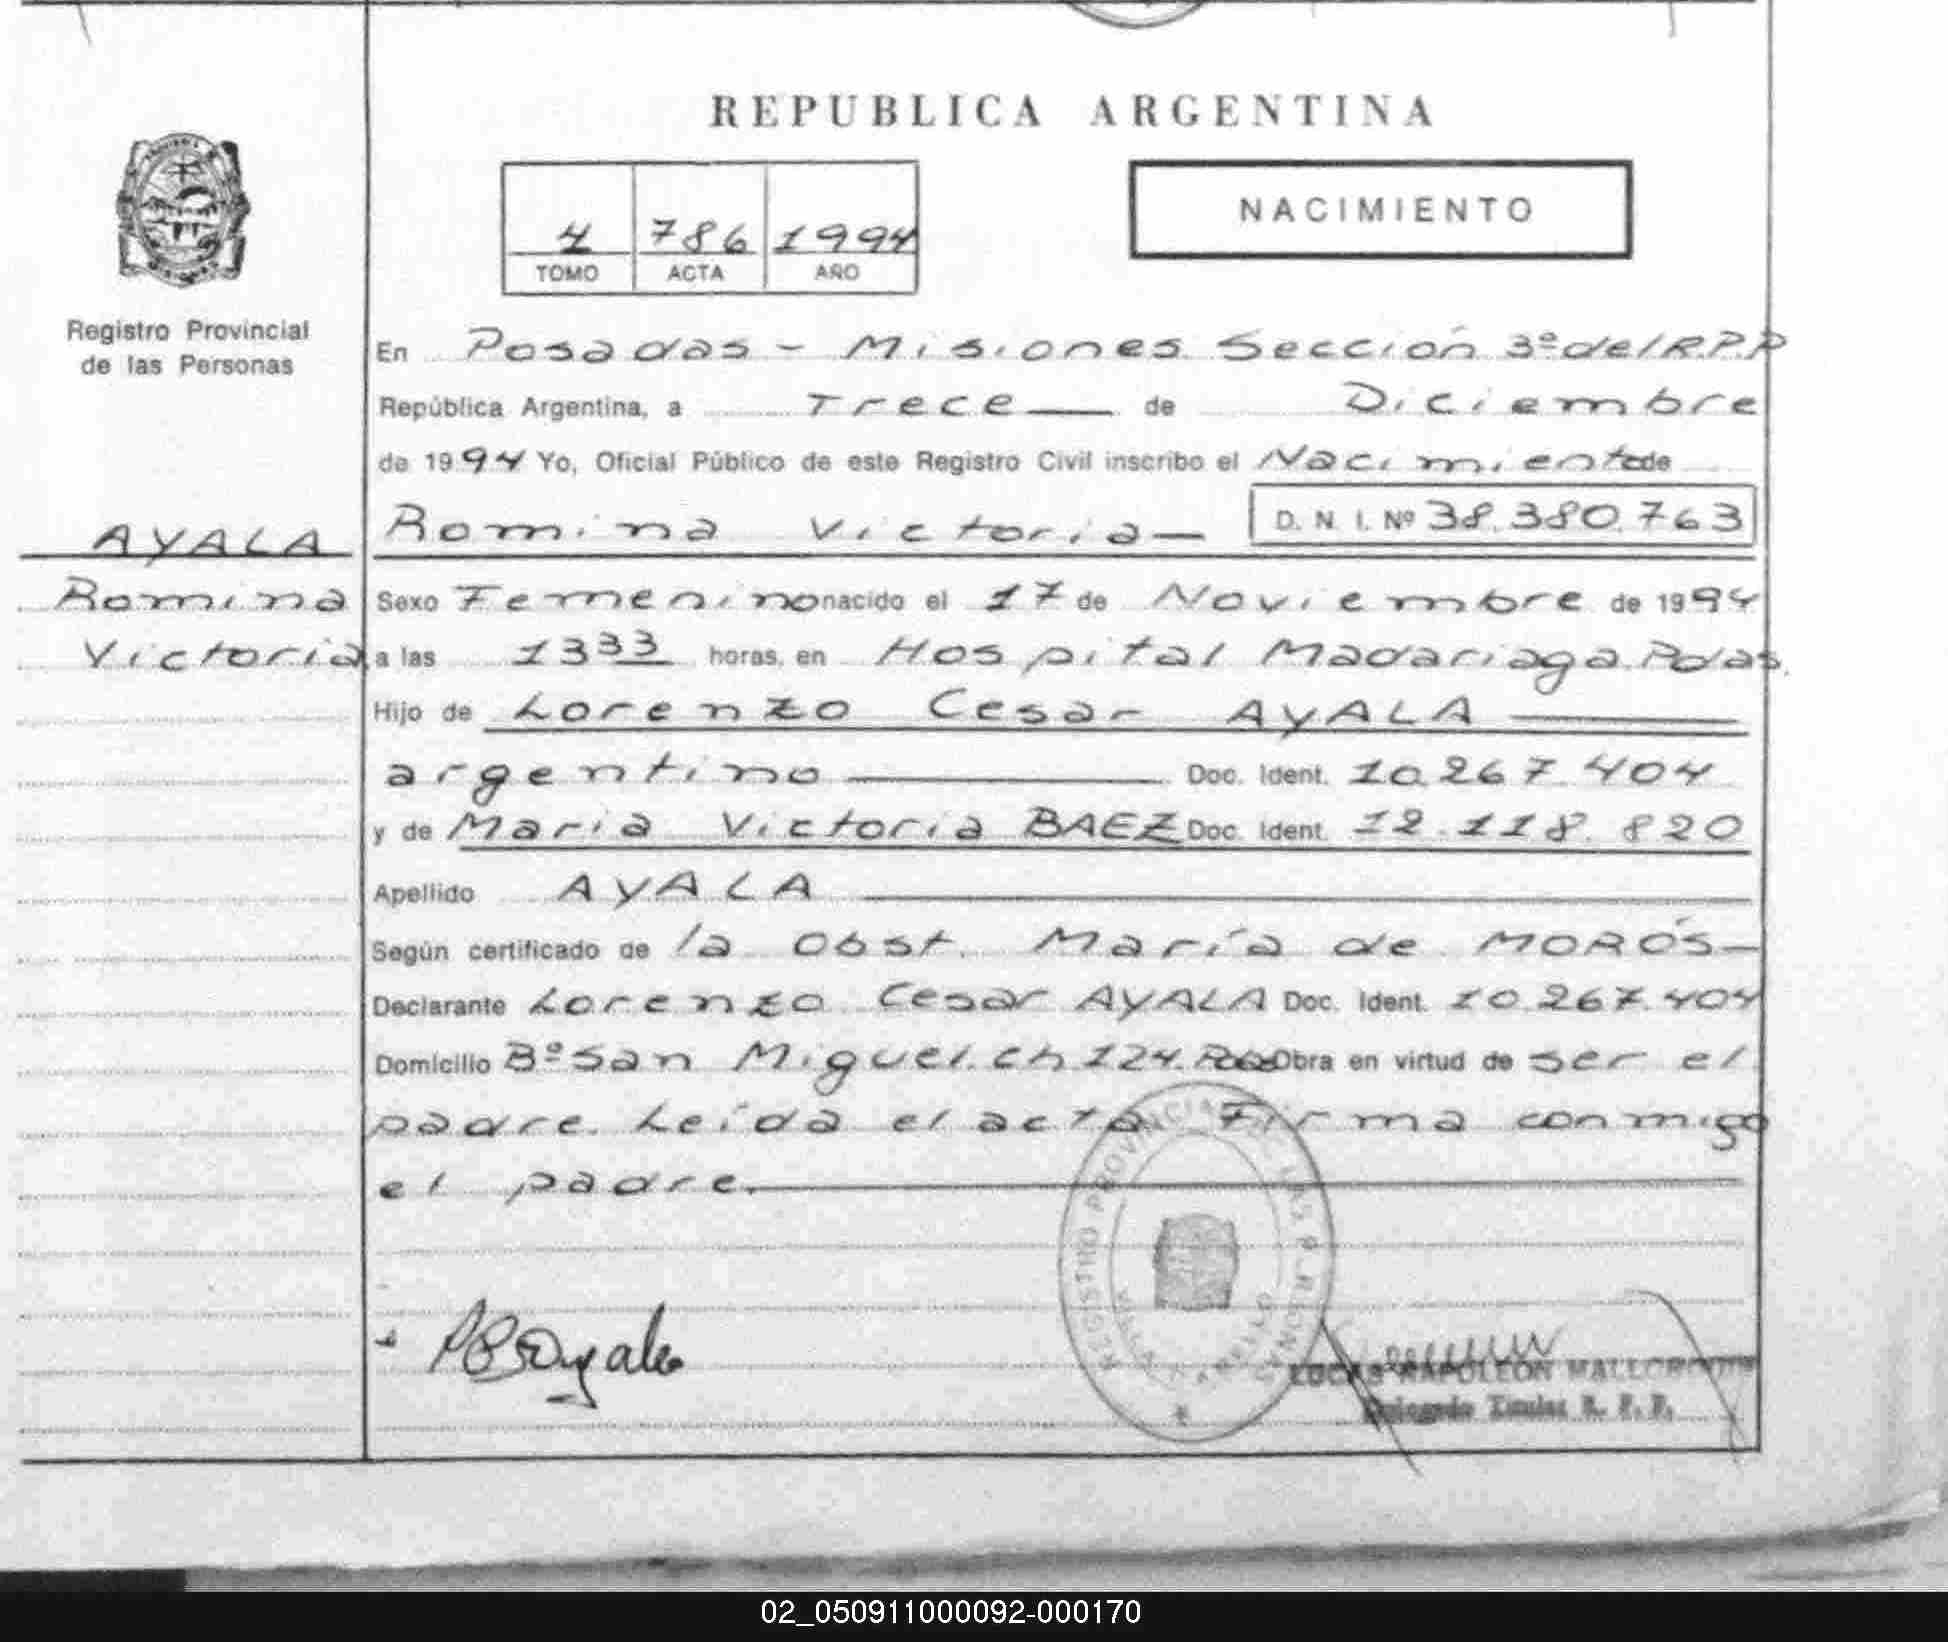 REPUBLICA ARGENTINA
NACIMIENTO
4 786 1994
TOMO ACTA AÑO
Registro Provincial
de las Personas
En Posadas - Misiones Sección 3º del R.P.P
República Argentina, a Trece de Diciembre
de 1994 Yo, Oficial Público de este Registro Civil inscribo el Nacimiento de
AYALA
Romina Victoria
D. N. I. Nº 38.380.763
Romina
Victoria
Sexo Femenino nacido el 17 de Noviembre de 1994
a las 13 33 horas, en Hospital Madariaga Pdas.
Hijo de Lorenzo Cesar AYALA
argentino Doc. Ident. 10.267.404
y de Maria Victoria BAEZ Doc. Ident. 12.118.820
Apellido AYALA
Según certificado de la Obst. María de MORÓS
Declarante Lorenzo Cesar AYALA Doc. Ident. 10.267.404
Domicilio Bº San Miguel. Ch 124. Obra en virtud de ser el
padre. Leída el acta Firma conmigo
el padre.
REGISTRO PROVINCIAL DE LAS PERSONAS
LUCAS NAPOLEON
Delegado Titular R. P. P.
02_050911000092-000170